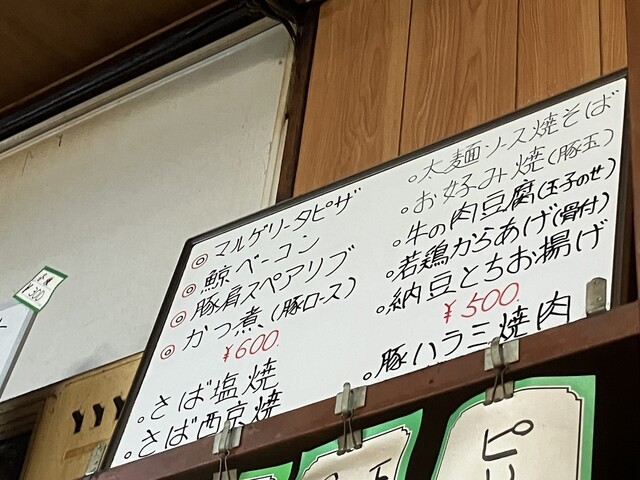 ◎マルゲリータピザ
◎鯨ベーコン
◎豚肩スペアリブ
◎かつ煮(豚ロース)
¥600.
。さば塩焼
。さば西京焼
。太麺ソース焼そば
。お好み焼(豚玉)
。牛の肉豆腐(玉子のせ)
。若鶏からあげ(骨付)
。納豆とちお揚げ
¥500.
。豚ハラミ焼肉
¥300
ピ